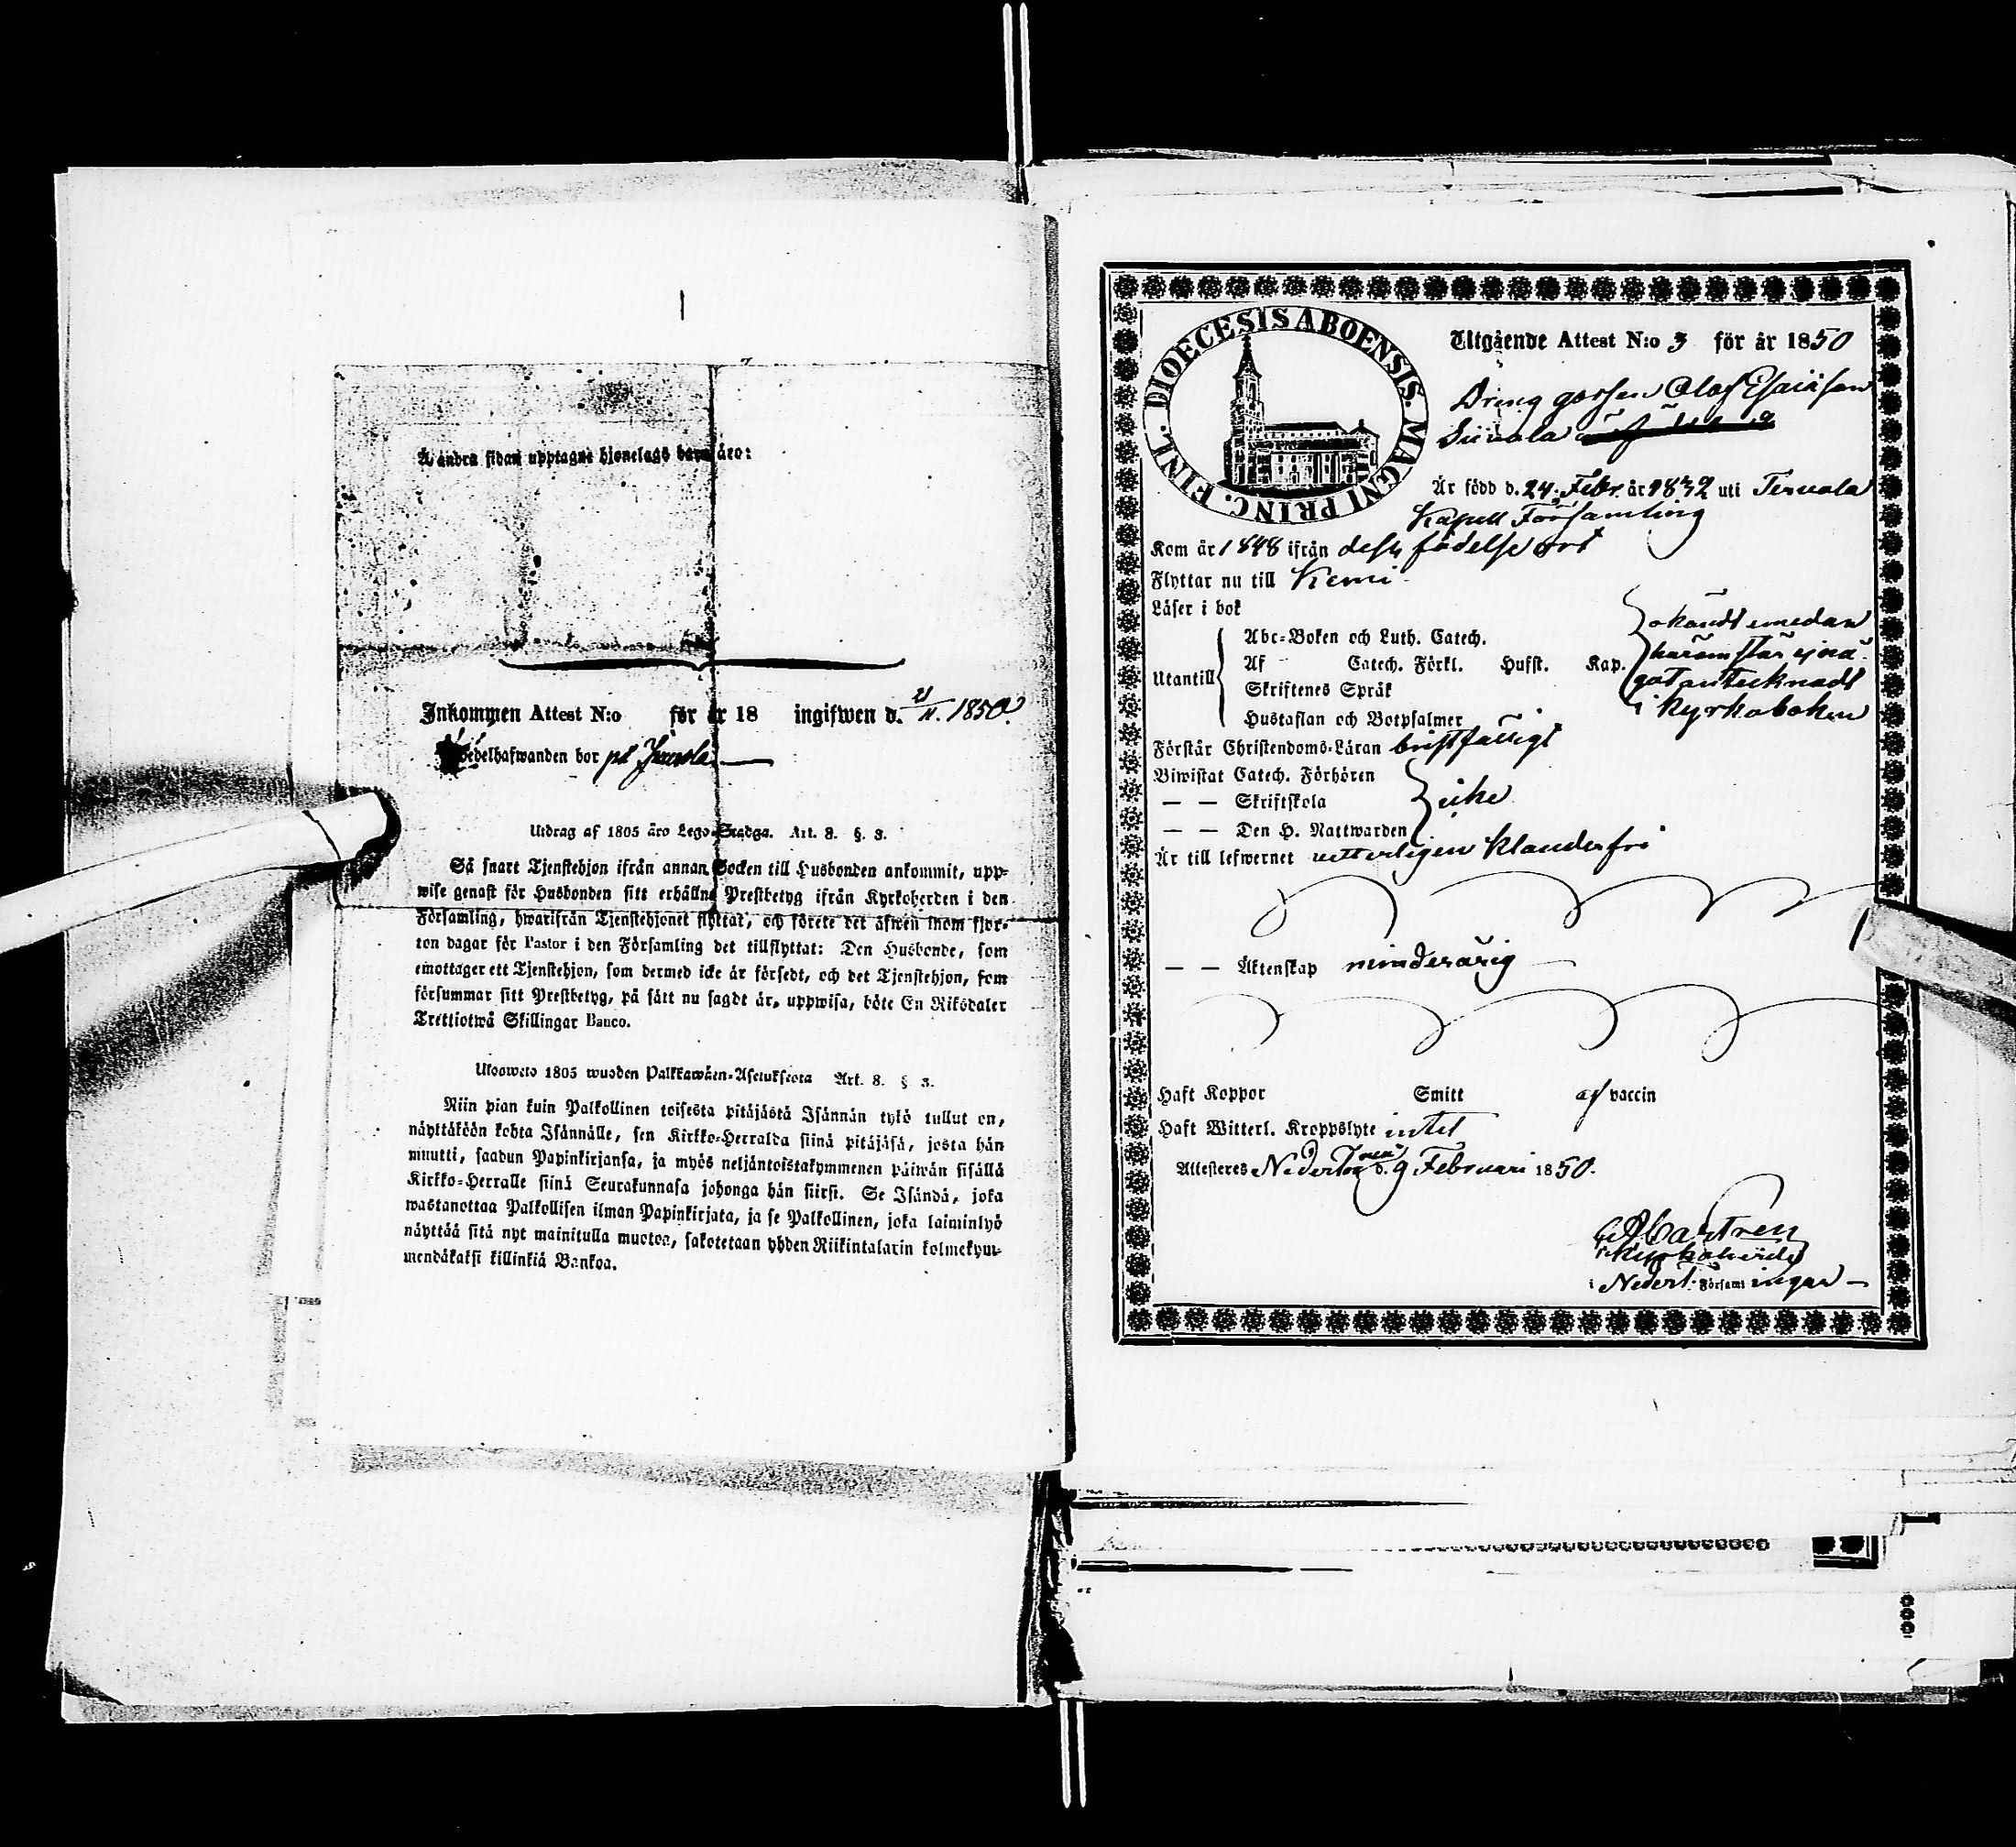 Å andra sidan upptagne hjonelags barn äro:
Inkommen Attest N:o för år 18 ingifwen d. 21/11. 1850.
bedelhafwanden bor på
Utdrag af 1805 åro Lego-Stadga. Art. 8. §. 3.
Så snart Tjenstehjon ifrån annan Socken till Husbonden ankommit, upp-
wise genast för Husbonden sitt erhållne Prestbetyg ifrån Kyrkoherden i den
Församling, hwarifrån Tjenstehjonet flyttat, och förete det äfwen inom fjor-
ton dagar för Pastor i den Församling det tillflyttat: Den Husbonde, som
emottager ett Tjenstehjon, som dermed icke är försedt, och det Tjenstehjon, som
försummar sitt Prestbetyg, på sätt nu sagdt är, uppwisa, böte En Riksdaler
Trettiotwå Skillingar Banco.
Ulosweto 1805 wuoden Palkkawäen-Asetuksesta Art. 8. § 3.
Niin pian kuin Palkollinen toisesta pitäjästä Isännän tykö tullut on,
näyttäköön kohta Isännälle, sen Kirkko-Herralda siinä pitäjäsä, josta hän
muutti, saadun Papinkirjansa, ja myös neljäntoistakymmenen päiwän sisällä
Kirkko-Herralle siinä Seurakunnasa johonga hän siirsi. Se Isändä, joka
wastanottaa Palkollisen ilman Papinkirjata, ja se Palkollinen, joka laiminlyö
näyttää sitä nyt mainitulla muotoa, sakotetaan yhden Riikintalarin kolmekym-
mendäkaksi killinkiä Bankoa.
DIOECESIS ABOENSIS. MAGNI PRINC. FINL.
Utgående Attest N:o 3 för år 1850
Dreng gossen Olof Esaiisson
Är född d. 24. Febr. år 1832 uti Tervola
Kapell Församling
Kom år 1848 ifrån dess födelse ort
Flyttar nu till Kemi
Läser i bok
Utantill
Abc-Boken och Luth. Catech.
Af Catech. Förkl. Hufst. Kap.
Skriftenes Språk
Hustaflan och Botpsalmer
okändt emedan
härom står ej nå-
got antecknadt
i Kyrkoboken
Förstår Christendoms-Läran bristfälligt
Biwistat Catech. Förhören
— — Skriftskola icke
— — Den H. Nattwarden
Är till lefwernet witterligen klanderfri
— — Äktenskap minderårig
Haft Koppor Smitt af vaccin
Haft Witterl. Kroppslyte intet
Attesteres Nedertorneå d. 9 Februari 1850.
Castrén
Kyrkoherde
i Nedert. Församlingar